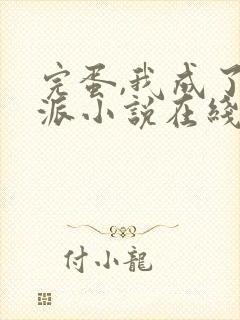 完蛋,我成了
派小説在綫
付小龍